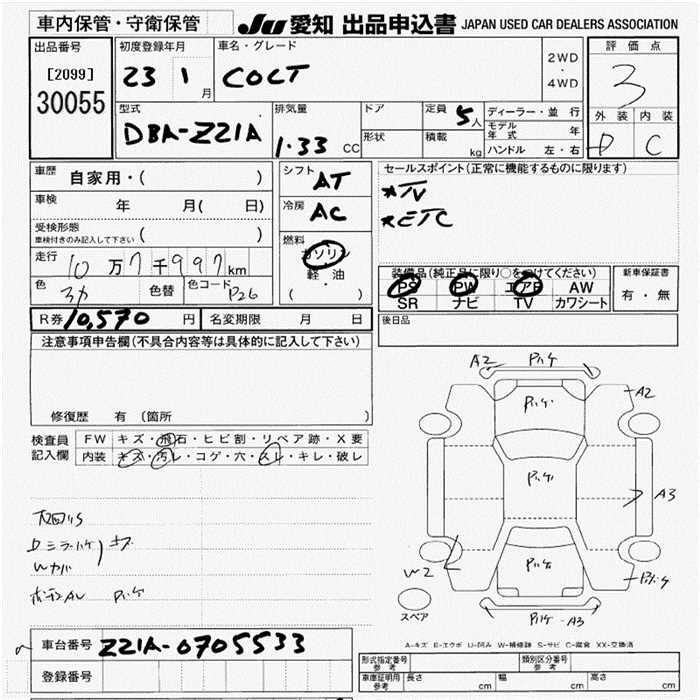 車内保管・守衛保管
JU 愛知 出品申込書 JAPAN USED CAR DEALERS ASSOCIATION
出品番号
[2099]
30055
初度登録年月
23 1 月
車名・グレード
COLT
2WD
・
4WD
評価点
3
外装 内装
D C
型式
DBA-Z21A
排気量
1.33 CC
ドア
形状
定員 5人
積載 kg
ディーラー・並行
モデル年式 年
ハンドル 左・右
車歴 自家用・( )
車検 年 月( 日)
受検形態
車検付きのみ記入して下さい ( )
走行 10万7千997km
色 色替 色コード P26
シフト AT
冷房 AC
燃料
ガソリン
・
軽・油
( )
セールスポイント(正常に機能するものに限ります)
*TV
*ETC
装備品(純正品に限り○をつけてください)
PS PW エアB AW
SR ナビ TV カワシート
新車保証書
有・無
R券 10,570 円 名変期限 月 日
後日品
注意事項申告欄(不具合内容等は具体的に記入して下さい)
修復歴 有 (箇所 )
検査員記入欄
FW キズ・飛石・ヒビ割・リペア跡・X要
内装 キズ・汚レ・コゲ・穴・スレ・キレ・破レ
A2 A2
A3
W2
A3
スペア
A-キズ E-エクボ U-凹み W-補修跡 S-サビ C-腐食 XX-交換済
車台番号 Z21A-0705533
登録番号
形式指定番号 参考
類別区分番号 参考
車庫証明用 参考 長さ cm 幅 cm 高さ cm